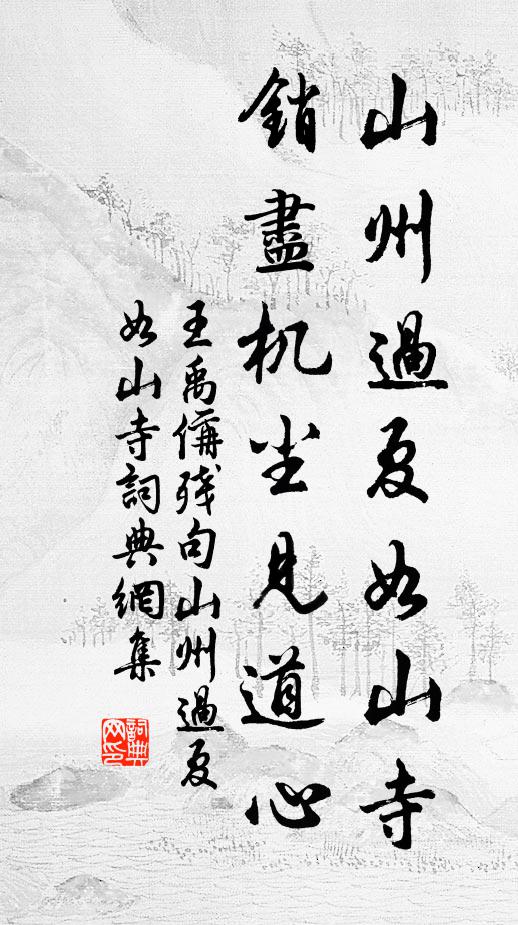 山州過夏如山寺
銷盡机坐見道心
王禹偁残句山州過夏
如山寺詞典網集
詞典网印